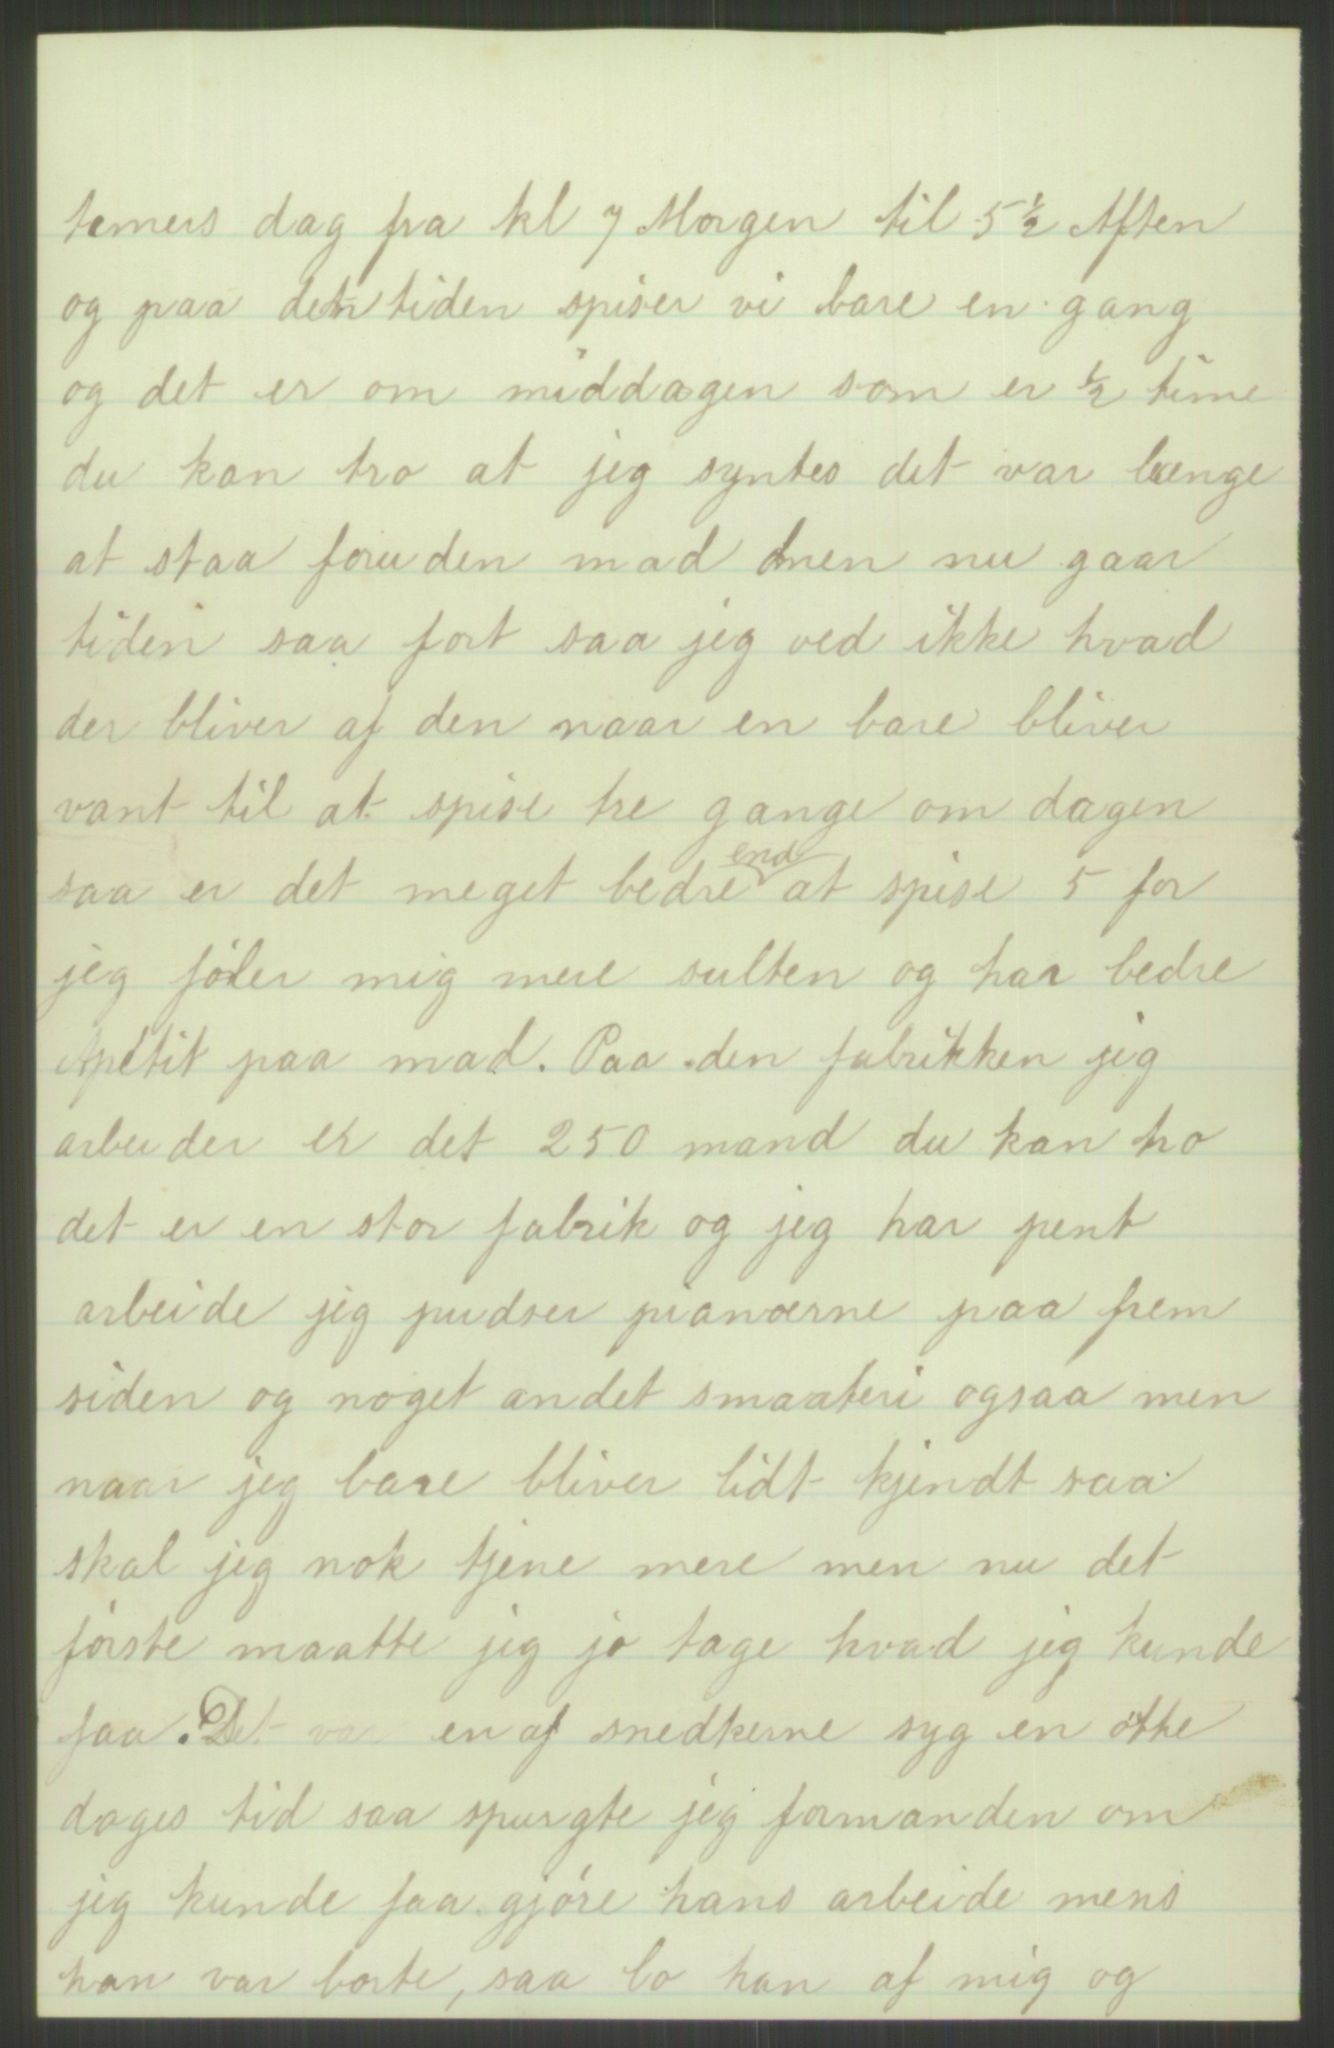 temers dag fra kl 7 Morgen til 5 ½ Aften
og paa den tiden spiser vi bare en gang
og det er om middagen som er ½ time
du kan tro at jeg syntes det var længe
at staa foruden mad men nu gaar
tiden saa fort saa jeg ved ikke hvad
der bliver af den naar en bare bliver
vant til at spise tre gange om dagen
saa er det meget bedre end at spise 5 for
jeg føler mig mere sulten og har bedre
Apetit paa mad. Paa den fabrikken jeg
arbeider er det 250 mand du kan tro
det er en stor fabrik og jeg har pent
arbeide jeg pudser pianoerne paa frem
siden og noget andet smaateri ogsaa men
naar jeg bare bliver lidt kjendt saa
skal jeg nok tjene mere men nu det
første maatte jeg jo tage hvad jeg kunde
faa. Det var en af snedkerne syg en otte
dages tid saa spurgte jeg formanden om
jeg kunde faa gjøre hans arbeide mens
han var borte, saa lo han af mig og